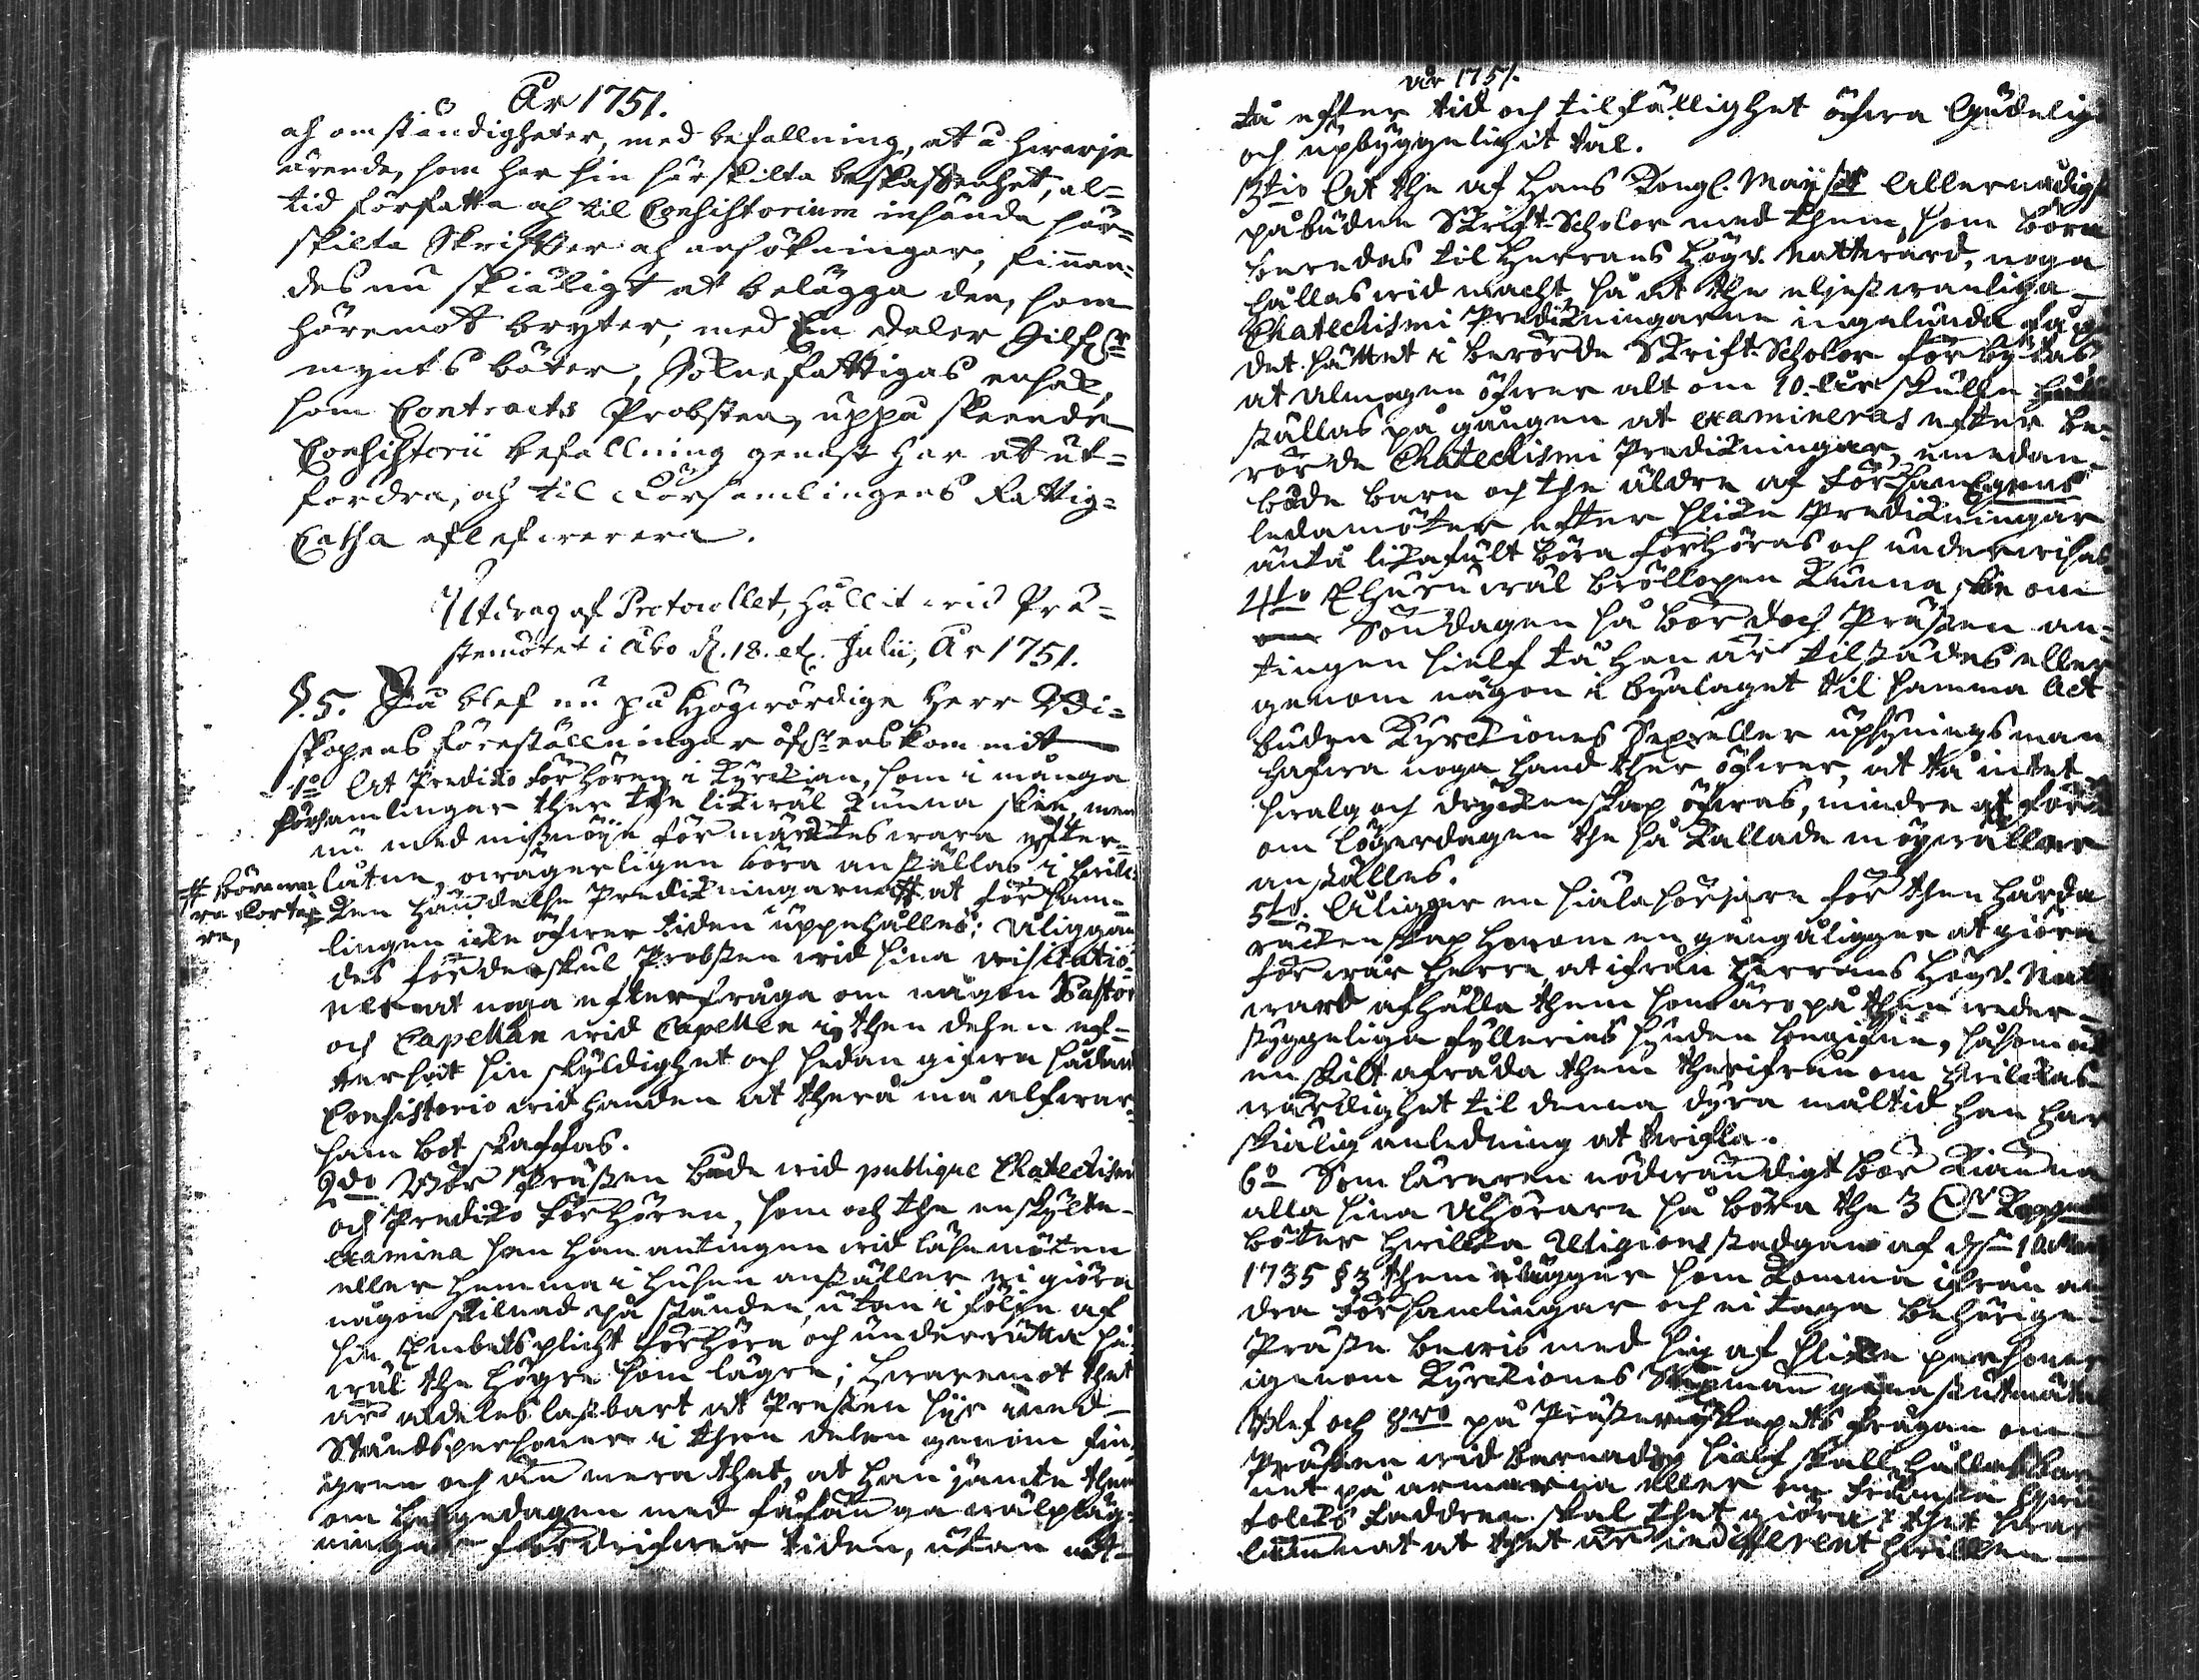 År 1751.
och omständigheter, med befallning, at i hwarje
ärende, som har sin särskilta beskaffenhet, al-
tid författa och til Consistorium insända sär-
skilta Skrifter och ansökningar, finnan-
des nu skiäligt at belägga den, som
häremot bryter, med En daler Silf:r
mynts böter, Soknefattigas ensak,
som Contracts Probsten, uppå skeende
Consistorii befallning genast har at ut-
fordra, och til Församlingens Fattig-
Cassa aflefwerera.
Utdrag af Protocollet, hållit wid Prä-
stemötet i Åbo d. 18. Julii, År 1751.
§. 5. Då blef nu på Högwördige Herr Bi-
skopens föreställningar öfwerenskommit
1o At Prediko förhören i Kyrckian, som i många
församlingar ther the likwäl kunna skie, men
nu med missnöije förmärcktes wara efter-
låtne, owägerligen böra anställas, i hwilc-
ken händelse Predikningarne # at försam-
# böra wa-
ra korta-
re,
lingen icke öfwer tiden uppehålles; åliggan-
des fördenskul Probsten wid sina visitatio-
ner at noga efterfråga om någon Pastor
och Capellan wid Capellen i then delen ef-
tersatt sin skyldighet och sedan gifwa sådant
Consistorio wid handen at therå må alfwar-
sam bot skaffas.
2do Bör Prästen både wid publique Chatechismi
och Prediko förhören, som och the enskylte
examina han antingen wid läsemöten
eller hemma i husen anställer ei giöra
någon skilnad på stånden, utan i följe af
sin Embetsplicht förhöra och underrätta så
wäl the högre som lägre; hwaremot thet
är aldeles lastbart at Presten hyr med
Ståndspersoner i then delen genom fin-
gren och än mera thet, at han jämte them
om helgedagen med fåfänga wälpläg-
ningar fördrifwer tiden, utan at
År 1751.
tå efter tid och tilfällighet öfwa Gudeligt
och upbyggeligit tal.
3tio At the af Hans Kongl. Maij:st Allernådigst
påbudne Skrift-Scholor med them, som böra
beredas til Herrans Högv. Nattward, noga
hållas wid macht så at the eljest wanliga
Chatechismi Predikningarne ingalunda få på
det sättet i berörde Skrift-Scholor förbytas,
at almogen öfwer alt om 10. år skulle
ställas på gången at examineras efter be-
rörde Chatechismi Predikningar, emedan
både barn och the äldre af Församlingens
ledamöter efter slike Predikningar
ändå likafult böra förhöras och underwisas.
4to Ehuruwäl bröllopen kunna ske om
Söndagen så bör doch Prästen an-
tingen sielf tå han är tilstädes eller
genom någon i byalaget til samma Act
buden Kyrckiones Sex: eller upsyningsman
hafwa noga hand ther öfwer, at tå intet
swalg och dryckenskap öfwas, mindre at före
om Lögerdagen the så kallade möywallar
anställes.
5to. Åligger en siälasörjare för then hårda
räckenskap honom en gång åligger at giöra
för wår Herre, at ifrån Herrans Högv. Natt-
ward afhålla them som äro på then weder-
styggeliga fylleries synden begifne, såsom at
enskilt afråda them therifrån om hwilckas
wärdighet til denna dyra måltid han har
skiälig anledning at twifla.
6o Som läraren nödwändigt bör kiänna
alla sina åhörare så böra the 3 D:r
böter hwilka Religions stadgan af d:n 10
1735 § 3 them ålägger som komma ifrån an-
dra församlingar och ei taga behörige
Präste bewis med sig af slike personer
igenom Kyrckiones Sexman genast utmätas
Blef och 8vo på Prästerskapets frågan om
Prästen wid barnadop sielf skall hålla bar-
net på armarna eller om främsta
folcks fadder skal thet giöra, thet swar
lemnat at thet är indifferent hwilken